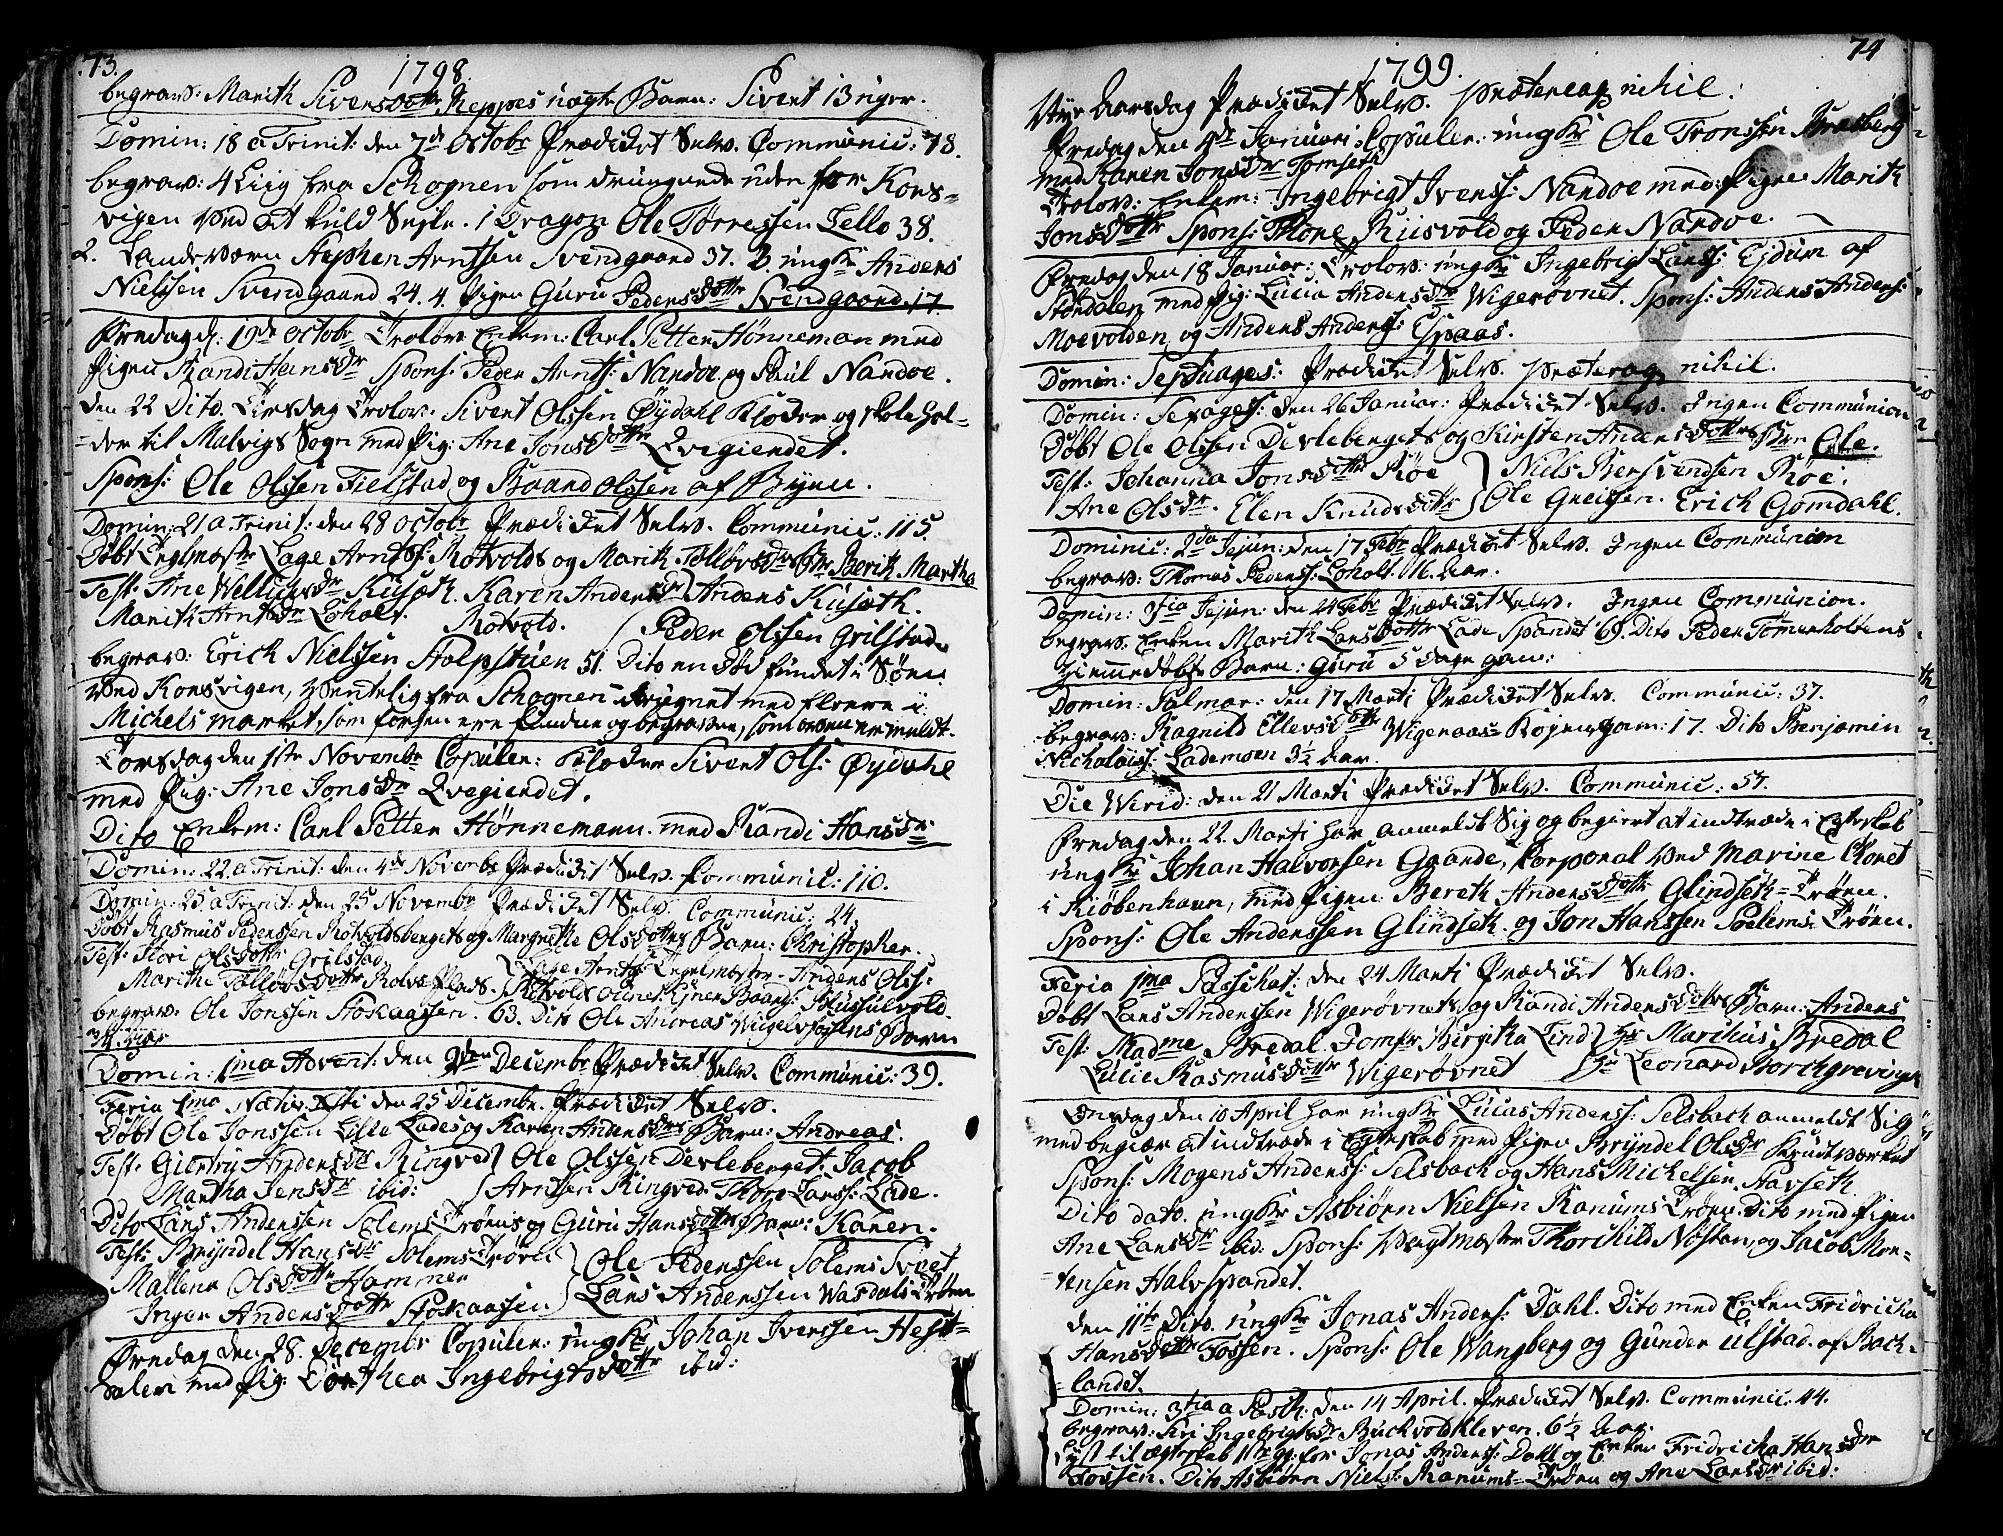 73.
1798.
begrav: Marith Siversdottr Reppes uægte Barn: Sivert 13 uger.
Domin: 18 a Trinit: den 7de Octobr Prædiket Selv. Communic: 78.
begrav: 4 Liig fra Schognen som drungnede uden for Kors-
vigen ved at kuld Seyle. 1 Dragon Ole Torressen Sello 38.
2. Landeværn Stephen Arntsen Svendgaard 37. 3. ungKr Anders
Nielssen Svendgaard 24. 4. Pigen Guru Pedersdottr Svendgaard 17.
Fredag d. 19de Octobr Trolov: Enkem: Carl Petter Hønneman med
Pigen Randi Hansdr Spons: Peder Arnts: Nardoe og Paul Nardoe.
den 22 Dito. Tirsdag Trolov: Sivert Olssen Øydahl Kloker og skolehol-
der til Malvigs Sogn med Pig: Ane Jonsdottr Qvegiendet.
Spons: Ole Olssen Fielstad og Baard Olssen af Byen.
Domin: 21 a Trinit: den 28 Octobr Prædiket Selv. Communic: 115.
Døbt Teglmestr Lage Arntss: Rotvolds og Marith Tolløvsdrs Br Berith Martha
Test: Ane Wellumsdr Kuseth. Karen Andersdr Anders Kuseth.
Marith Arntsdr Loholt. Rotvold. Peder Olssen Grilstad.
begrav: Erich Nielssen Stolpstuen 51. Dito en død fundet i Søen
ved Korsvigen, ventelig fra Schognen druknet med flere i
Michels market, som forhen ere fundne og begravne, som oven er meldt.
Torsdag den 1ste Novembr Copuler: Kloker Sivert Ols: Øydahl
med Pig: Ane Jonsdr Qvegiendet.
Dito Enkem: Carl Petter Hønnemann med Randi Hansdr.
Domin: 22 a Trinit: den 4de Novembr Prædiket Selv. Communic: 110.
Domin: 25 a Trinit: den 25 Novembr Prædiket Selv. Communic: 24.
Døbt Rasmus Pederssen Rotvoldsbergets og Margrethe Olsdottrs Barn: Christopher.
Test: Kori Olsdottr Grilstad.
Marithe Tolløvsdottr Rolvs Plads. Lage Arnts: Teglmester Anders Olss:
Rotvold
begrav: Ole Jonssen Stokaasen. 63. Dito Ole Andreas Barn
3/4 Aar
Domin: 1ma Advent: den 2den Decembr Prædiket Selv. Communic: 39.
Feria 1ma Nativ: Xsti den 25 Decembr. Prædiket Selv.
Døbt Ole Jonssen Lille Lades og Karen Andersdrs Barn: Andreas.
Test: Giertru Andersdr Ringved Ole Olssen Devleberget. Jacob
Martha Jensdr ibid: Arntsen Ringved. Thore Larss: Lade.
Dito Lars Anderssen Solems Trøens og Guru Hansdottrs Barn: Karen.
Test: Bryndel Hansdr Solems Trøen Ole Pederssen Solems Svoet
Mallena Olsdottr Hammer Lars Anderssen Wasdals Trøen
Inger Andersdottr Stokaasen
Fredag den 28. Decembr Copuler: ungKr Johan Iverssen Hest-
dalen med Pig: Dorthea Ingebrigtsdottr ibid:
74
1799.
Nye Aarsdag Prædiket Selv. præterea nihil.
Fredag den 4de Januari: Copuler: ungKr Ole Tronssen Bræberg
med Karen Jonsdr Tomseth
Trolov: Enkem: Ingebrigt Iverss: Nardoe med Pigen Marith
Jonsdottr Spons: Thore Risvold og Peder Nardoe.
Fredag den 18 Januar: Trolov: ungKr Ingebrigt Larss: Ejdum af
Størdalen med Pig: Lucia Andersdr Wigerøvnet. Spons: Anders Anders:
Moevolden og Anders Anderss: Espaas.
Domin: Septuages: Prædiket Selv. præterea nihil.
Domin: Sexages: den 26 Januar: Prædiket Selv. Ingen Communion
Døbt Ole Olssen Devlebergets og Kirsten Andersdottrs Barn Ole.
Test: Johanna Jonsdottr Røe Niels Bersvendsen Røe.
Ane Olsdr. Elen Knudsdottr Ole Greissen. Erich Gomdahl.
Dominic: 2da Jejun: den 17 Febr Prædiket Selv. Ingen Communion
begrav: Thomas Pederss: Loholt. 16. Aar.
Domin: 3tia Jejun: den 24 Febr Prædiket Selv. Ingen Communion.
begrav: Enken Marith Larsdottr Lade Spandet 69. Dito Peder Tomerholtens
hiemmedøbte Barn: Guru 5 dage gam:
Domin: Palmar: den 17 Marti Prædiket Selv. Communic: 37.
begrav: Ragnild Ellevsdottr Wigeraas Rojer gam: 17. Dito Benjamin
Nicholaiss: Lademoen 3½ Aar.
Die Virid: den 21 Marti Prædiket Selv. Communic: 57.
Fredag den 22. Marti har anmeldt Sig og begiert at indtræde i Egteskab
ungKr Johan Halvorssen Gaande, Korporal ved Marine Choret
i Kiøbenhavn, med Pigen Bereth Andersdottr Glindseth-Trøen.
Spons: Ole Anderssen Glindseth og Jon Hanssen Solems Trøen.
Feria 1ma Paschat: den 24 Marti Prædiket Selv.
Døbt Lars Anderssen Wigerøvnets og Randi Andersdottrs Barn: Anders
Test: Madme Bredal. Jomfr Birgitha Lind Hr Marthus Bredal
Lucie Rasmusdottr Wigerøvnet Hr Leonard Borchgrevingk
Onsdag den 10 April har ungKr Lucas Anderss: Selsbach anmeldt Sig
med begiær at indtræde i Egteskab med Pigen Bryndel Olsdr Krudtværket
Spons: Mogens Anderss: Selsbach og Hans Mickelsen Havseth.
Dito dato. ungKr Asbiørn Nielssen Ranums Trøen. Dito med Pigen
Ane Larsdr ibid: Spons: Vagtmester Thorchild Nøstan, og Jacob Mor-
tensen Halvspandet.
den 11te Dito. ungKr Jonas Anders: Dahl. Dito med Enken Fridricha
Hansdottr Fossen. Spons: Ole Wangberg og Gunder Ulstad. af Bach-
landet.
Domin: 3tia a Pasch: den 14 April. Prædiket Selv. Communic: 44.
begrav: Siri Ingebrigtsdr Buchvoldkleven. 6½ Aar.
Lyst til ægteskab 1ste g: for Jonas Anderss: Dahl og Enken Fridricha Hansdr
Fossen. Dito Asbiørn Niels: Ranums-Trøen og Ane Larsdr ibid: